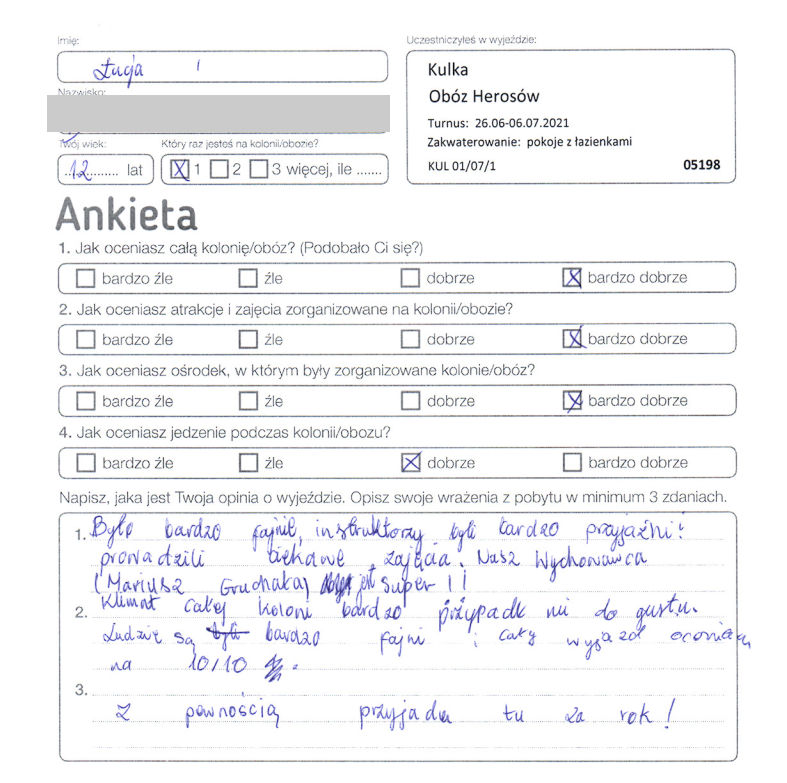 Imię:
Łucja
Nazwisko:
Twój wiek:
12 lat
Który raz jesteś na kolonii/obozie?
X 1 2 3 więcej, ile .......
Uczestniczyłeś w wyjeździe:
Kulka
Obóz Herosów
Turnus: 26.06-06.07.2021
Zakwaterowanie: pokoje z łazienkami
KUL 01/07/1 05198
Ankieta
1. Jak oceniasz całą kolonię/obóz? (Podobało Ci się?)
bardzo źle źle dobrze X bardzo dobrze
2. Jak oceniasz atrakcje i zajęcia zorganizowane na kolonii/obozie?
bardzo źle źle dobrze X bardzo dobrze
3. Jak oceniasz ośrodek, w którym były zorganizowane kolonie/obóz?
bardzo źle źle dobrze X bardzo dobrze
4. Jak oceniasz jedzenie podczas kolonii/obozu?
bardzo źle źle X dobrze bardzo dobrze
Napisz, jaka jest Twoja opinia o wyjeździe. Opisz swoje wrażenia z pobytu w minimum 3 zdaniach.
1. Było bardzo fajnie, instruktorzy byli bardzo przyjaźni i
prowadzili ciekawe zajęcia. Nasz Wychowawca
(Mariusz Gruchała) jest super!!
2. Klimat całej koloni bardzo przypadł mi do gustu.
Ludzie są byli bardzo fajni i cały wyjazd oceniam
na 10/10.
3.
Z pewnością przyjadę tu za rok!